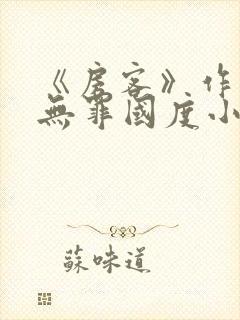 《房客》作
無罪國度小
蘇味道